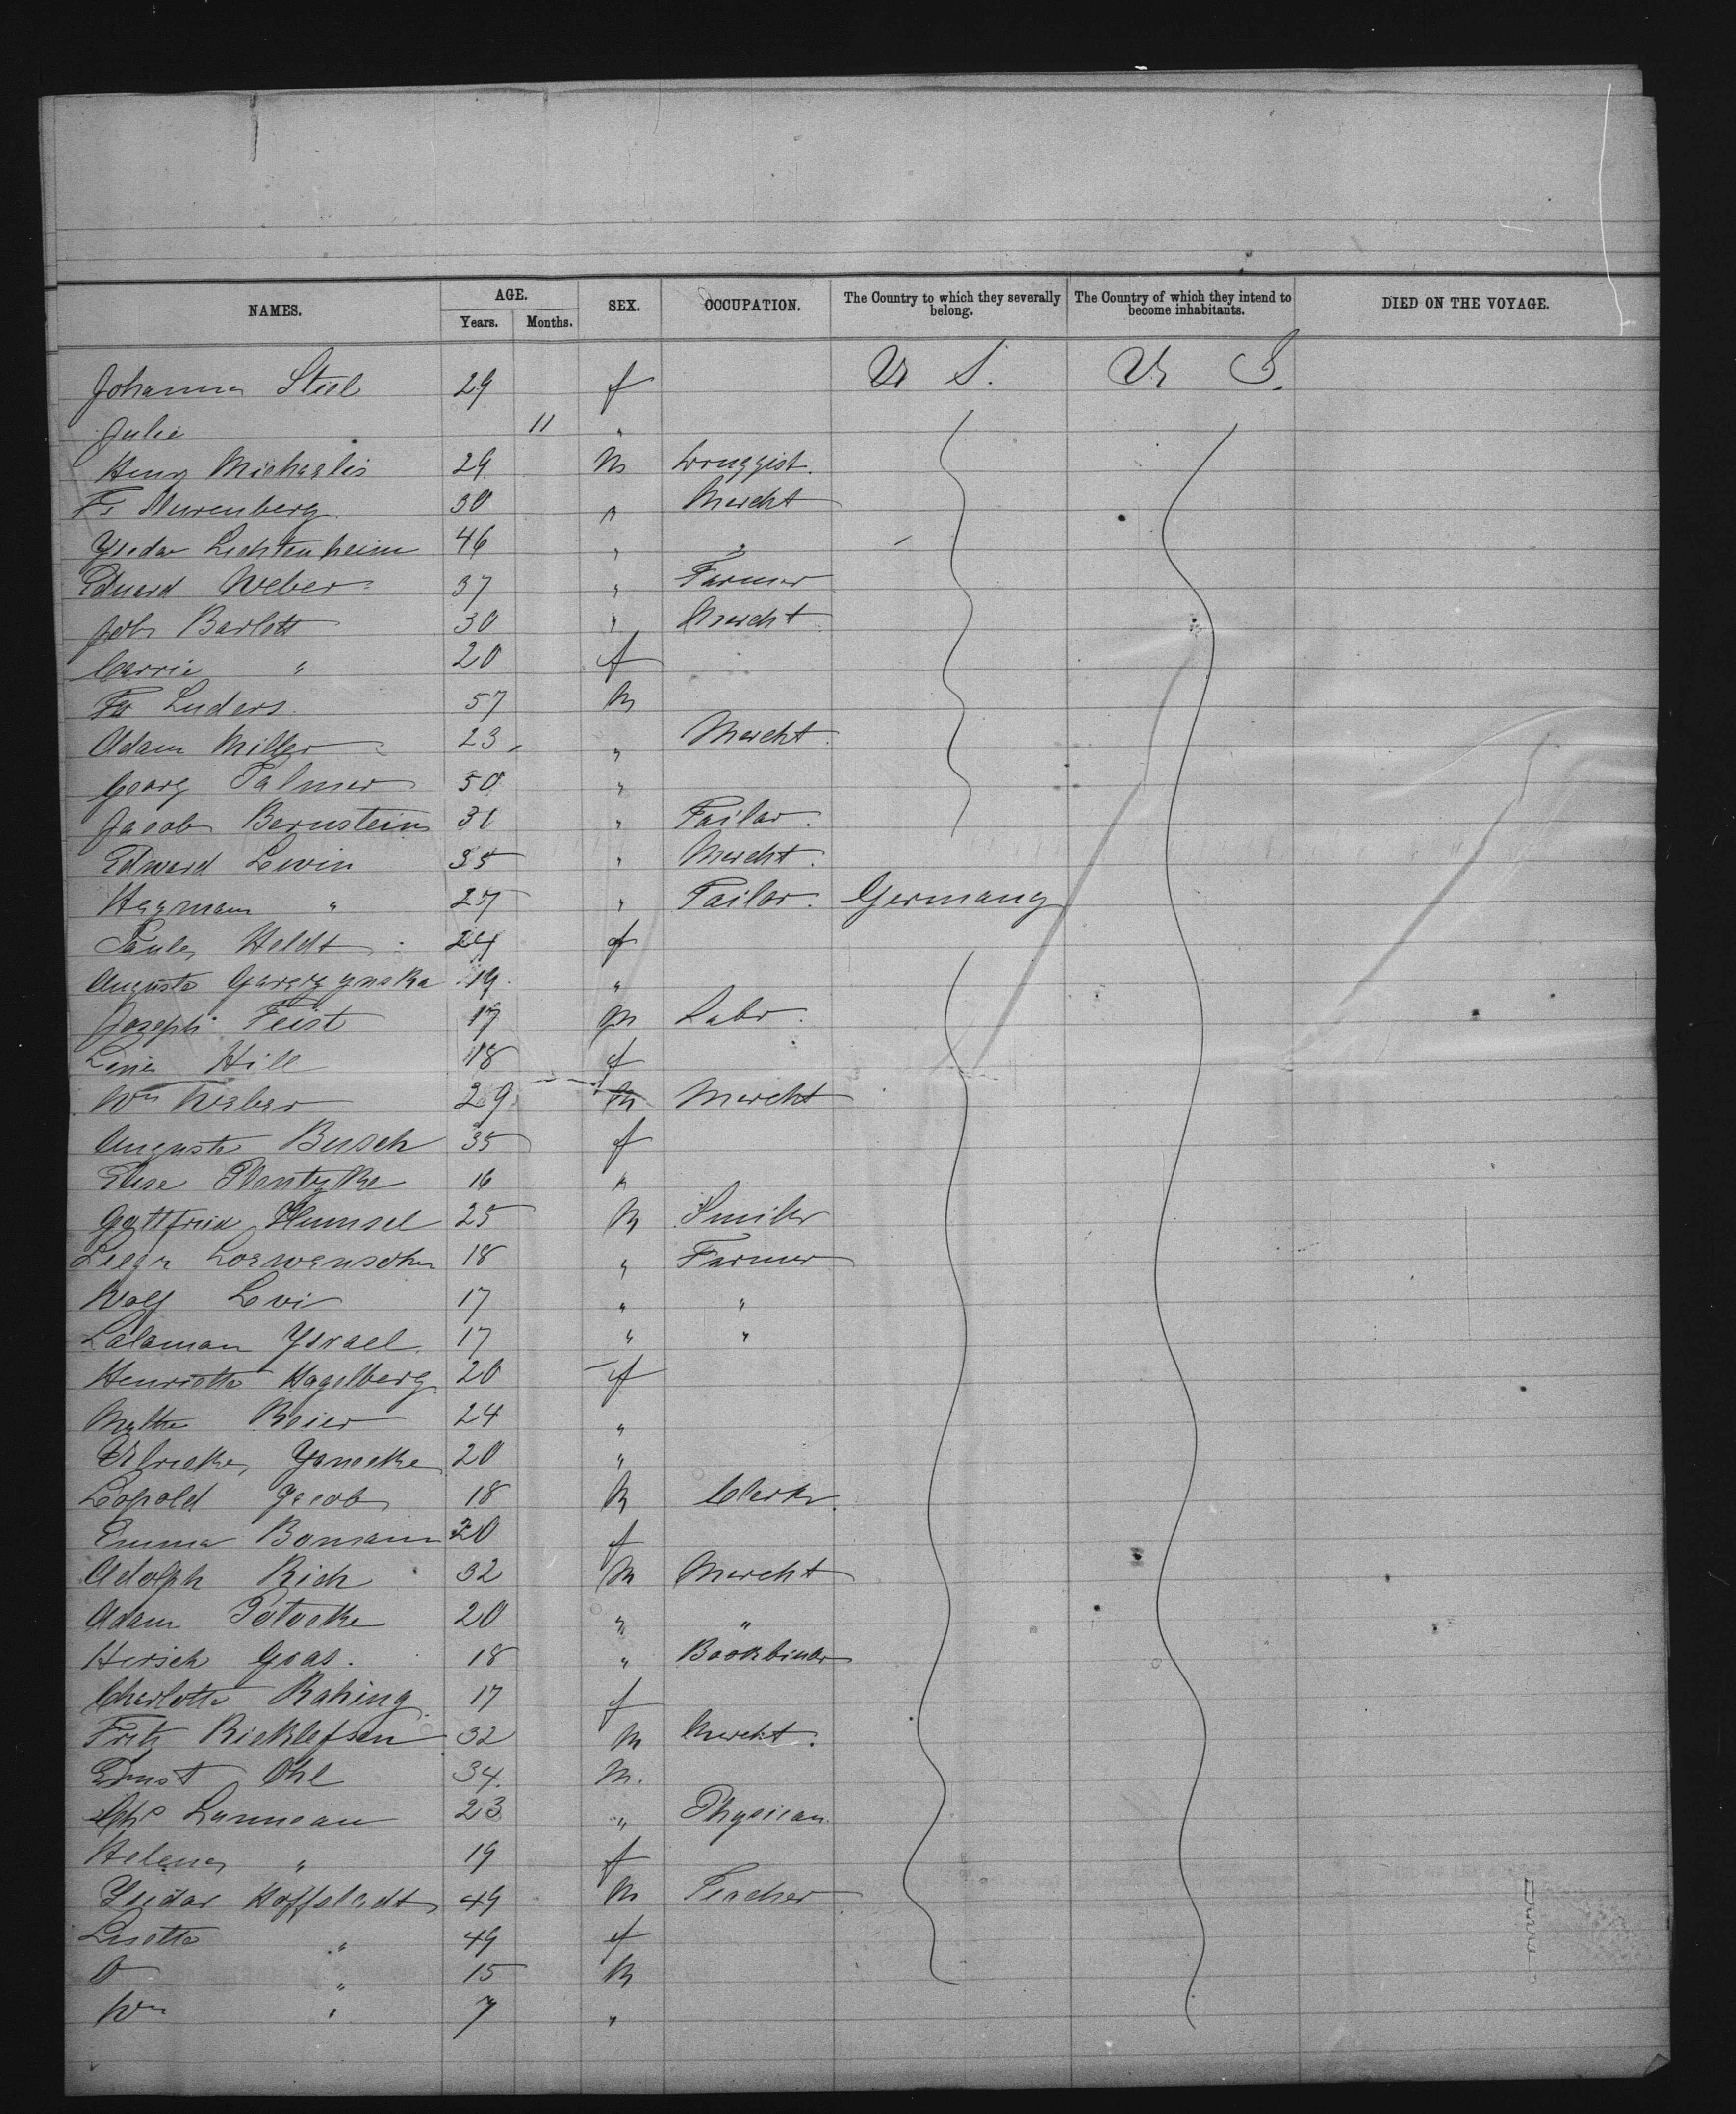 NAMES. AGE. SEX. OCCUPATION. The Country to which they severally belong. The Country of which they intend to become inhabitants. DIED ON THE VOYAGE.
Years. Months.
Johanna Steel 29 f U S. U S.
Julie 11 "
Henry Michaelis 29 m Druggist.
Fr Nurenberg 30 " Mercht
Ysedor Lichtenheim 46 " "
Eduard Weber 37 " Farmer
Joh Barlott 30 " Mercht
Carrie " 20 f
Fr Luders 57 m
Adam Miller 23 " Mercht
Georg Palmer 50 "
Jacob Bernstein 31 " Tailor.
Edward Lewin 35 " Mercht.
Heymann " 27 " Tailor. Germany
Paula Heldt 24 f
Auguste 19 "
Joseph Feist 17 m Labr.
Lina Hill 18 f
Wm Weber 29 m Mercht
Auguste Busch 35 f
Elise 16 "
Gottfried Humsel 25 m
Loewensohn 18 " Farmer
Wolf Levi 17 " "
Salaman Ysrael 17 " "
Henriette Hagelberg 20 f
Beier 24 "
Ulricke 20 "
Leopold Jacob 18 m Clerk.
Emma Bomann 20 f
Adolph Rich 32 m Mercht
Adam Pototke 20 " "
Hirsch Gras. 18 " Bookbinder
Charlotte Rahing 17 f
Fritz Ricklefsen 32 m Mercht.
Ernst Ohl 34. m.
Lanneau 23 " Physican.
Helena " 19 f
Ysidor Hoffstadt 49 m Teacher
Lisette " 49 f
O " 15 m
Wm " 7 "